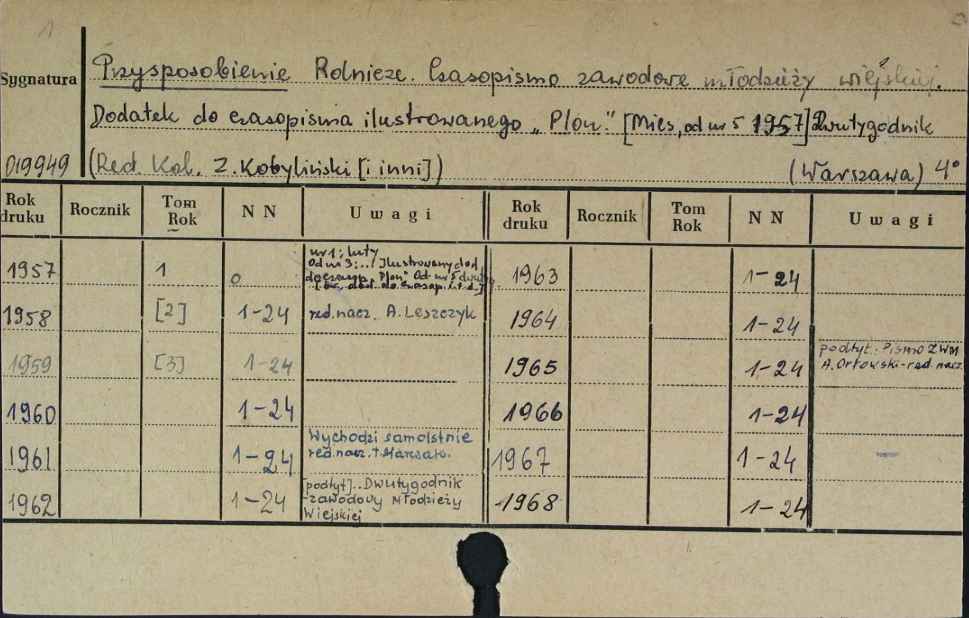 1
Sygnatura
Przysposobienie Rolnicze. Czasopismo zawodowe młodzieży wiejskiej.
Dodatek do czasopisma ilustrowanego „Plon." [Mies, od nr 5 1957] Dwutygodnik
019949 (Red. Kol. Z. Kobyliński [i inni]) (Warszawa) 4°
Rok druku Rocznik Tom Rok N N Uwagi Rok druku Rocznik Tom Rok N N Uwagi
1957 1 0 nr 1; luty
Od nr 3; ... Ilustrowany dod.
do czasop. „Plon" Od nr 5 dwutyg.
1963 1-24
1958 [2] 1-24 red. nacz. A. Leszczyk 1964 1-24
1959 [3] 1-24 1965 1-24 podtyt.: Pismo ZWM
A. Orłowski-red. nacz.
1960 1-24 1966 1-24
1961 1-24 Wychodzi samolstnie
red. nacz. T.
1967 1-24
1962 1-24 podtyt]. Dwutygodnik
-zawodowy Młodzieży
Wiejskiej
1968 1-24